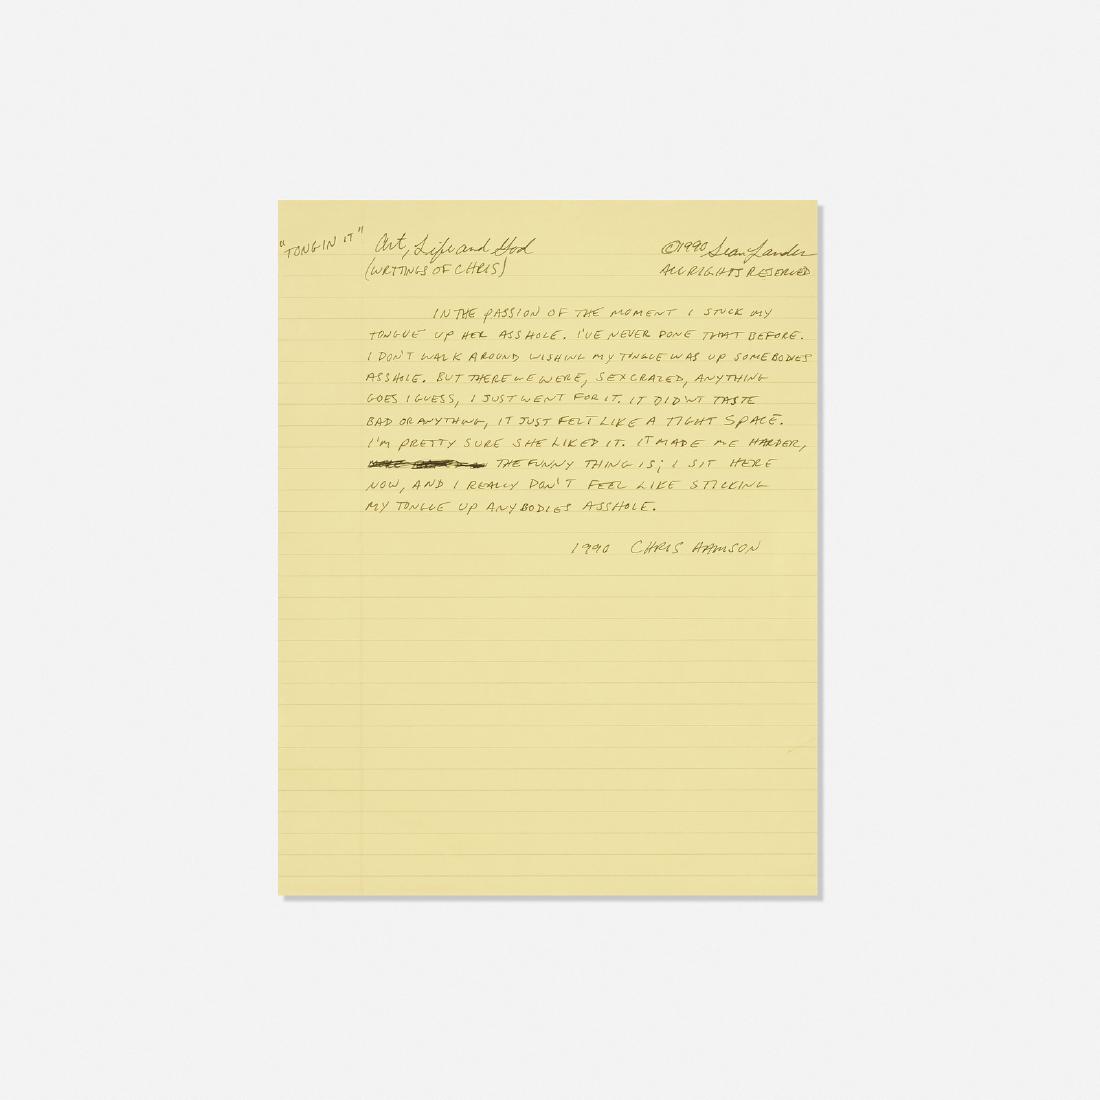 "TONGIN IT" Art, Life and God ©1990 Sean Landers
(WRITINGS OF CHRIS) ALL RIGHTS RESERVED
IN THE PASSION OF THE MOMENT I STUCK MY
TONGUE UP HER ASSHOLE. I'VE NEVER DONE THAT BEFORE.
I DON'T WALK AROUND WISHING MY TONGUE WAS UP SOMEBODIES
ASSHOLE. BUT THERE WE WERE, SEXCRAZED, ANYTHING
GOES I GUESS, I JUST WENT FOR IT. IT DIDN'T TASTE
BAD OR ANYTHING, IT JUST FELT LIKE A TIGHT SPACE.
I'M PRETTY SURE SHE LIKED IT. IT MADE ME HARDER,
THE FUNNY THING IS; I SIT HERE
NOW, AND I REALLY DON'T FEEL LIKE STICKING
MY TONGUE UP ANYBODIES ASSHOLE.
1990 CHRIS HAMSON